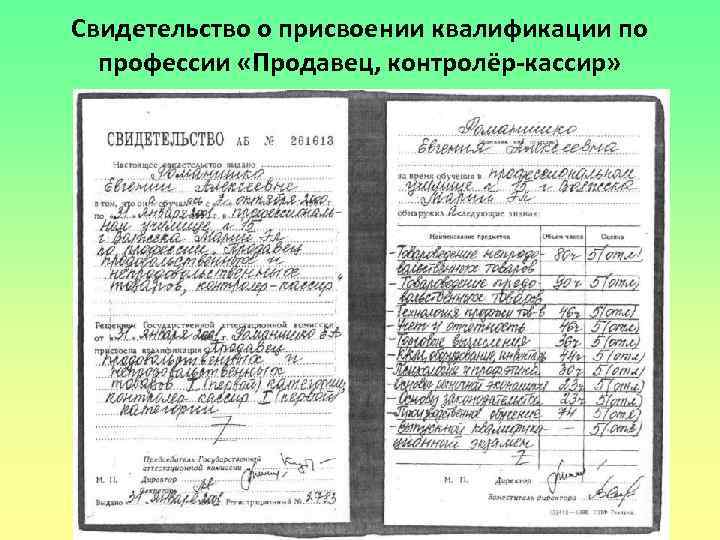 Свидетельство о присвоении квалификации по
профессии «Продавец, контролёр-кассир»
СВИДЕТЕЛЬСТВО АБ № 261613
Настоящее свидетельство выдано
Романишко
Евгении Алексеевне
в том, что он обучал с 9 октября 2000
по «31» января 2001 в профессиональ-
ном училище № 15
г Волжска Марий Эл
по профессии „Продавец
продовольственных и
непродовольственных
товаров, контролер-кассир"
Решением Государственной аттестационной комиссии
от 31 января 2001 Романишко ЕА
присвоена квалификация Продавец
продовольственных и
непродовольственных
товаров I (первой) категории,
контролер кассир I (первой)
категории
Председатель Государственной
аттестационной комиссии
М. П. Директор
Секретарь
Выдано 31 января 2001 Регистрационный № 2793
Романишко
Евгения Алексеевна
за время обучения в профессиональном
училище № 15 г Волжска
Марий Эл
обнаружил следующие знания:
Наименование предметов Объем часов Оценка
Товароведение непродо- 80ч 5(отл)
вольственных товаров
Товароведение продо- 90ч 5(отл)
вольственных товаров
Технология прод тов-в 46ч 5(отл)
Учет и отчетность 5(отл)
Торговые вычисления 36ч 5(отл)
ККМ, оборудование, инвентарь 44ч 5(отл)
Психология и 30ч 5(отл)
Основы рыночной экономики 23ч 5(отл)
Основы законодательства 23ч 5(отл)
Производственное обучение 74 5(отл)
Выпускной квалифика- 5(отл)
ционный экзамен
М. П. Директор
Заместитель директора